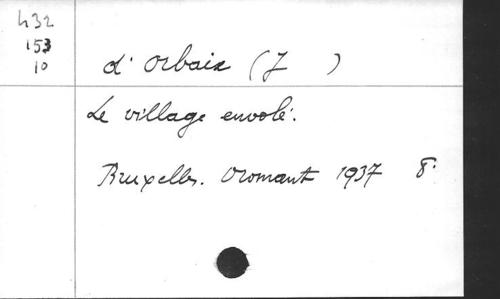 h32
153
10
d'Orbaix (J )
Le village envolé.
Bruxelles. Vromant 1937 8°